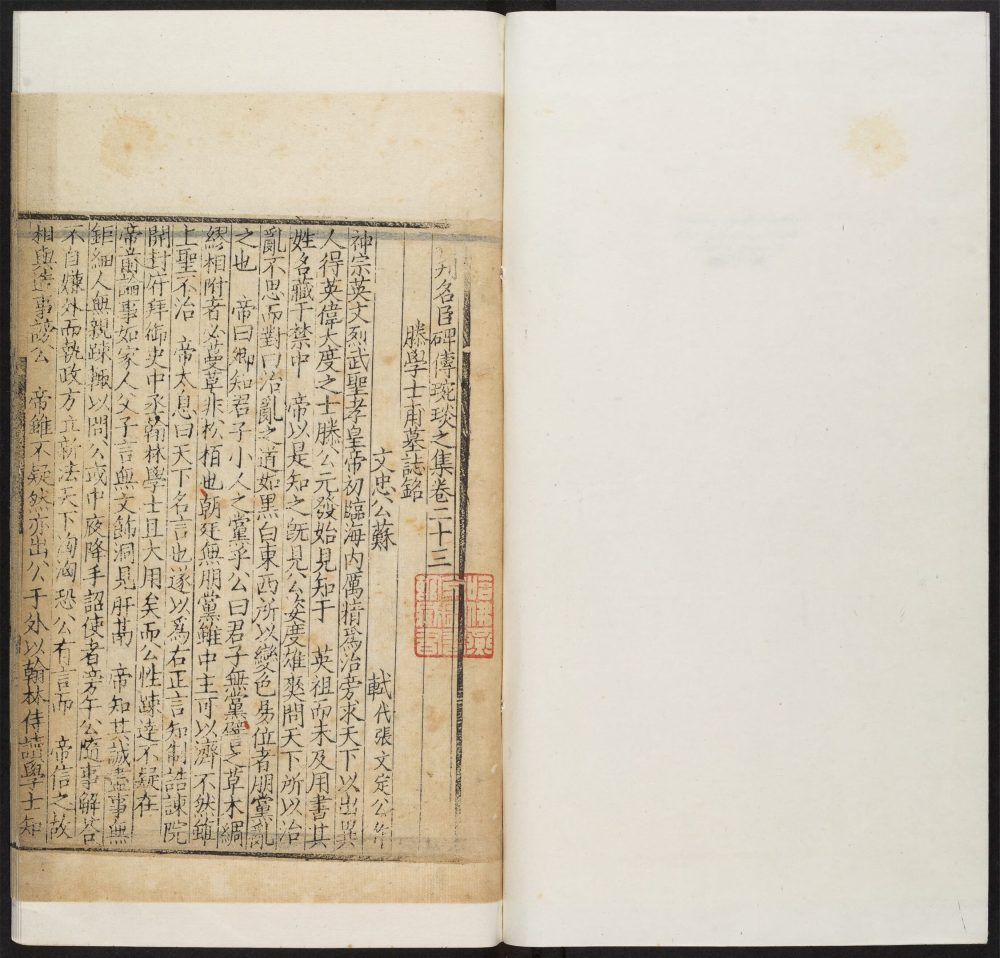 刋名臣碑傳琬琰之集卷二十三
滕學士甫墓誌銘
文忠公蘇 軾代張文定公作
神宗英文烈武聖孝皇帝初臨海内厲精爲治旁求天下以出異
人得英偉大度之士滕公元發始見知于 英祖而未及用書其
姓名藏于禁中 帝以是知之旣見公姿度雄爽問天下所以治
亂不思而對曰治亂之道如黑白東西所以變色易位者朋黨亂
之也 帝曰卿知君子小人之黨乎公曰君子無黨譬之草木綢
繆相附者必蔓草非松栢也朝廷無朋黨雖中主可以濟不然雖
上聖不治 帝太息曰天下名言也遂以爲右正言知制誥諫院
開封府拜御史中丞翰林學士且大用矣而公性踈達不疑在
帝前論事如家人父子言無文飾洞見肝鬲 帝知其誠盡事無
鉅細人無親踈輒以問公或中夜降手詔使者旁午公隨事解答
不自嫌外而執政方立新法天下洶洶恐公有言而 帝信之故
相與造事謗公 帝雖不疑然亦出公于外以翰林侍讀學士知